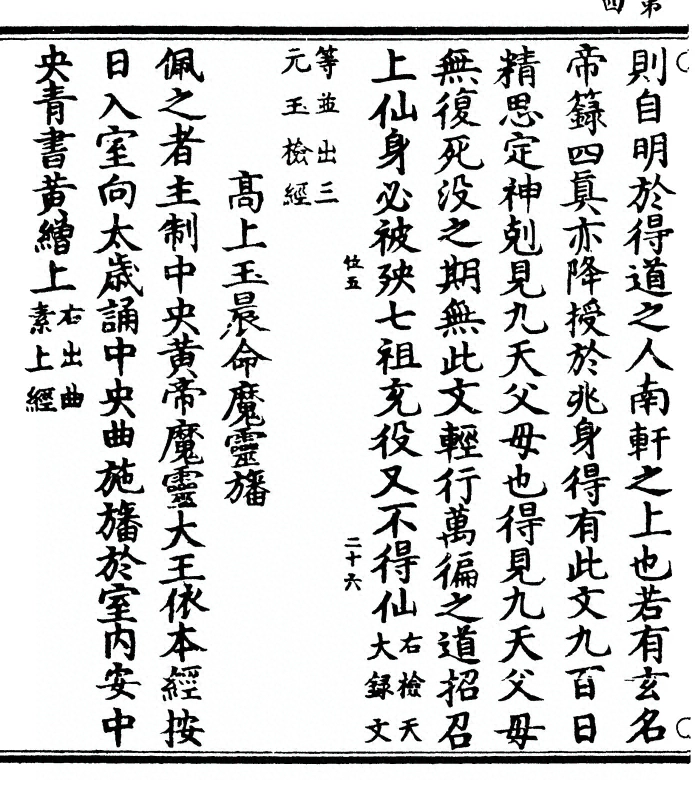 第四
則自明於得道之人南軒之上也若有玄名
帝籙四眞亦降授於兆身得有此文九百日
精思定神剋見九天父母也得見九天父母
無復死没之期無此文輕行萬徧之道招召
上仙身必被殃七祖充役又不得仙右檢天大録文
位五 二十六
等並出三元玉檢經
高上玉晨命魔靈旛
佩之者主制中央黄帝魔靈大王依本經按
日入室向太歳誦中央曲施旛於室内安中
央青書黄繒上右出曲素上經